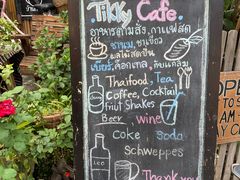 Tikky Cafe
อาหารตามสั่ง,กาแฟสด
ชานม,ชาเขียว
ผลไม้สดปั่น
เบียร์,ค็อกเทล,
Thaifood, Tea
Coffee, Cocktail
fruit Shakes
Beer wine
Coke Soda
Schweppes
Thank you
LEO
OPE